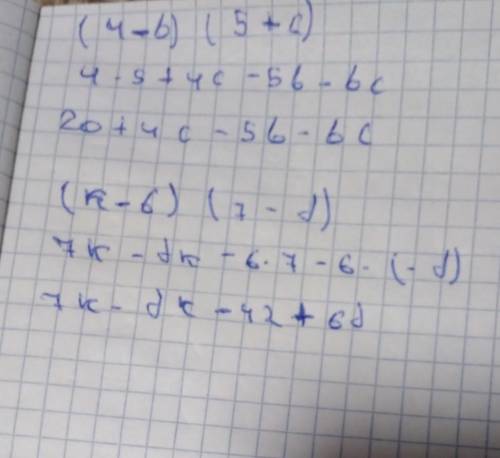 (4-b) (5+c)
4·5+4c-5b-bc
20+4c-5b-bc
(k-6) (7-d)
7k-dk-6·7-6·(-d)
7k-dk-42+6d